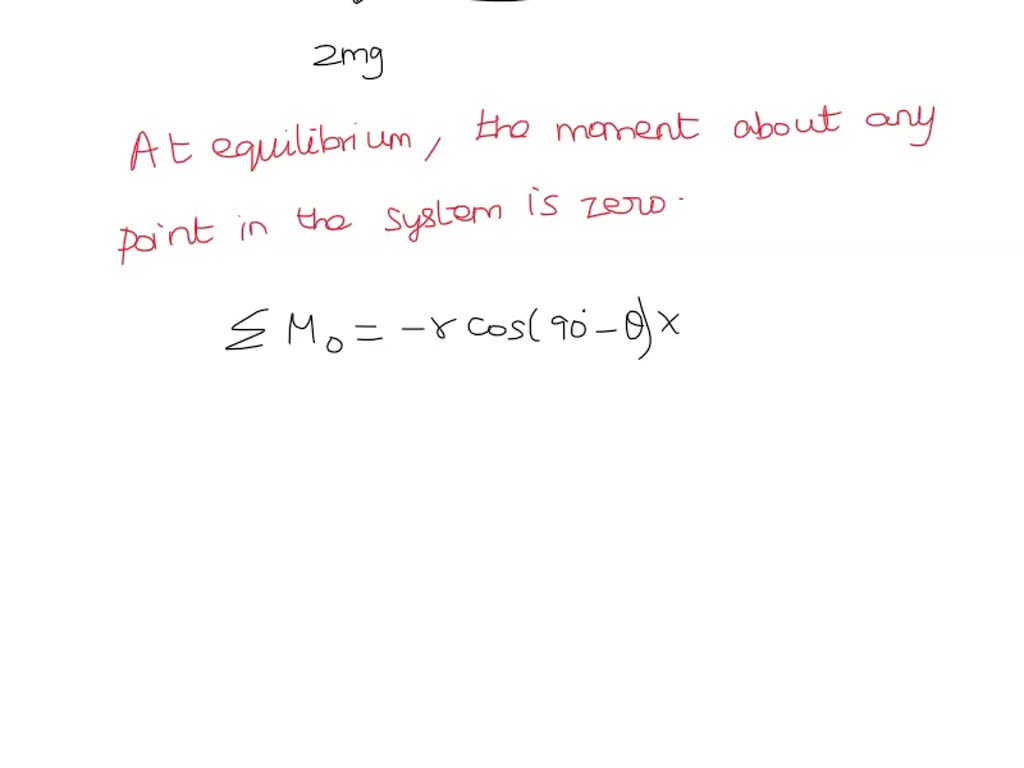 2mg
At equilibrium, the moment about any
point in the system is zero.
Σ M₀ = -r cos(90°-θ) x